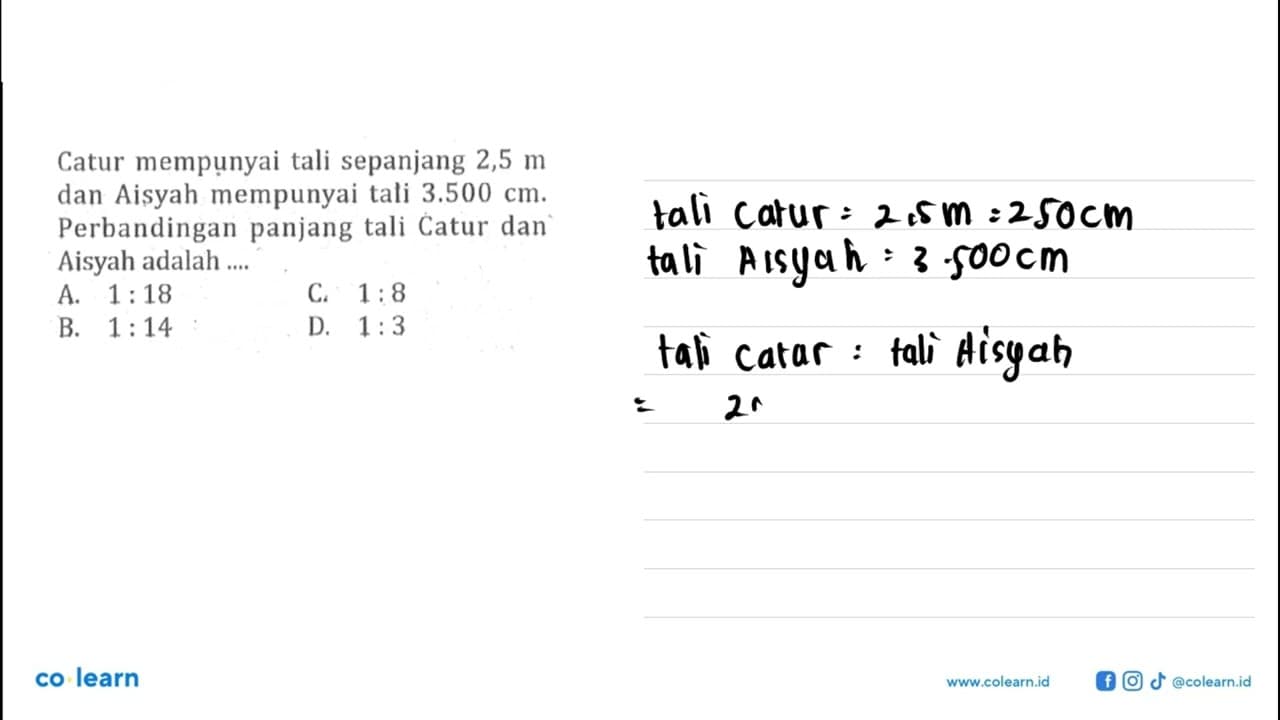 Catur mempunyai tali sepanjang 2,5 m
dan Aisyah mempunyai tali 3.500 cm.
Perbandingan panjang tali Catur dan
Aisyah adalah ....
A. 1 : 18
C. 1 : 8
B. 1 : 14
D. 1 : 3
tali Catur = 2,5 m = 250 cm
tali Aisyah = 3.500 cm
tali Catur : tali Aisyah
= 2
co learn
www.colearn.id
@colearn.id